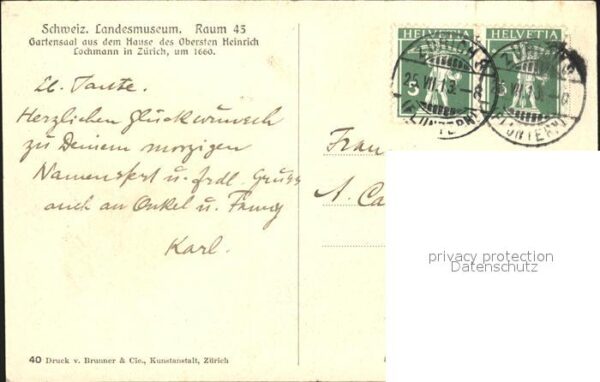 Schweiz. Landesmuseum. Raum 43
Gartensaal aus dem Hause des Obersten Heinrich
Lochmann in Zürich, um 1660.
HELVETIA HELVETIA
5
ZÜRICH 8
25.VII.13.
(FLUNTERN)
ZÜRICH 8
25.VII.13.
(FLUNTERN)
Lb. Tante.
Herzlichen Glückwunsch
zu Deinem morgigen
Namensfest u. frdl. Gruss
auch an Onkel u. Fanny
Karl.
Frau
A. Ca
privacy protection
Datenschutz
40 Druck v. Brunner & Cie., Kunstanstalt, Zürich